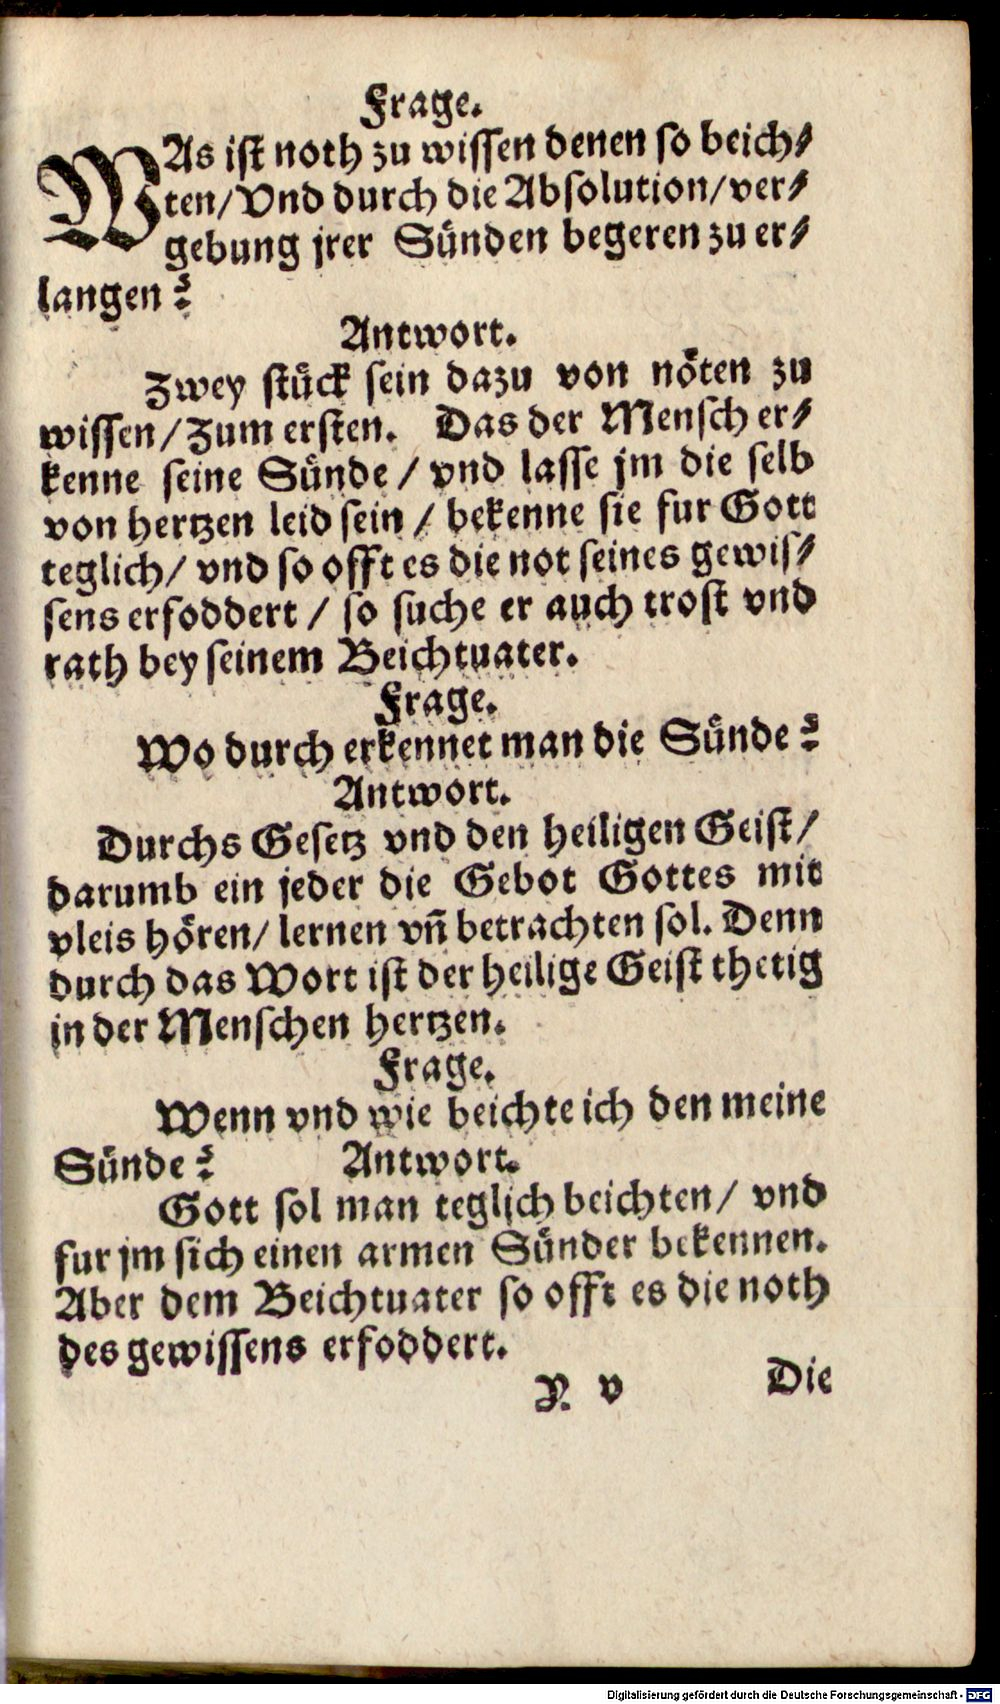 Frage.
WAs ist noth zu wissen denen so beich⸗
ten/ Vnd durch die Absolution/ ver⸗
gebung jrer Sünden begeren zu er⸗
langen?
Antwort.
Zwey stück sein dazu von nöten zu
wissen/ Zum ersten. Das der Mensch er⸗
kenne seine Sünde/ vnd lasse jm die selb
von hertzen leid sein/ bekenne sie fur Gott
teglich/ vnd so offt es die not seines gewis⸗
sens erfoddert/ so suche er auch trost vnd
rath bey seinem Beichtuater.
Frage.
Wo durch erkennet man die Sünde?
Antwort.
Durchs Gesetz vnd den heiligen Geist/
darumb ein jeder die Gebot Gottes mit
vleis hören/ lernen vn̄ betrachten sol. Denn
durch das Wort ist der heilige Geist thetig
in der Menschen hertzen.
Frage.
Wenn vnd wie beichte ich den meine
Sünde? Antwort.
Gott sol man teglich beichten/ vnd
fur jm sich einen armen Sünder bekennen.
Aber dem Beichtuater so offt es die noth
des gewissens erfoddert.
Y. v Die
Digitalisierung gefördert durch die Deutsche Forschungsgemeinschaft - DFG